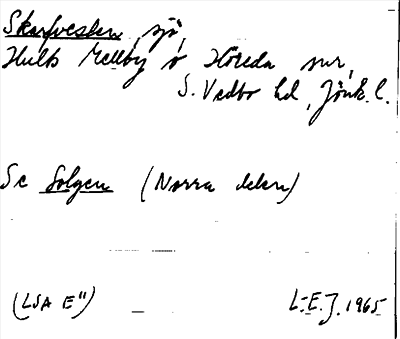 Skarfvesten, sjö,
Hults Mellby o Höreda snr,
S. Vedbo hd, Jönk. l.
Se Solgen (Norra delen)
(LSA E")
L-E. J. 1965